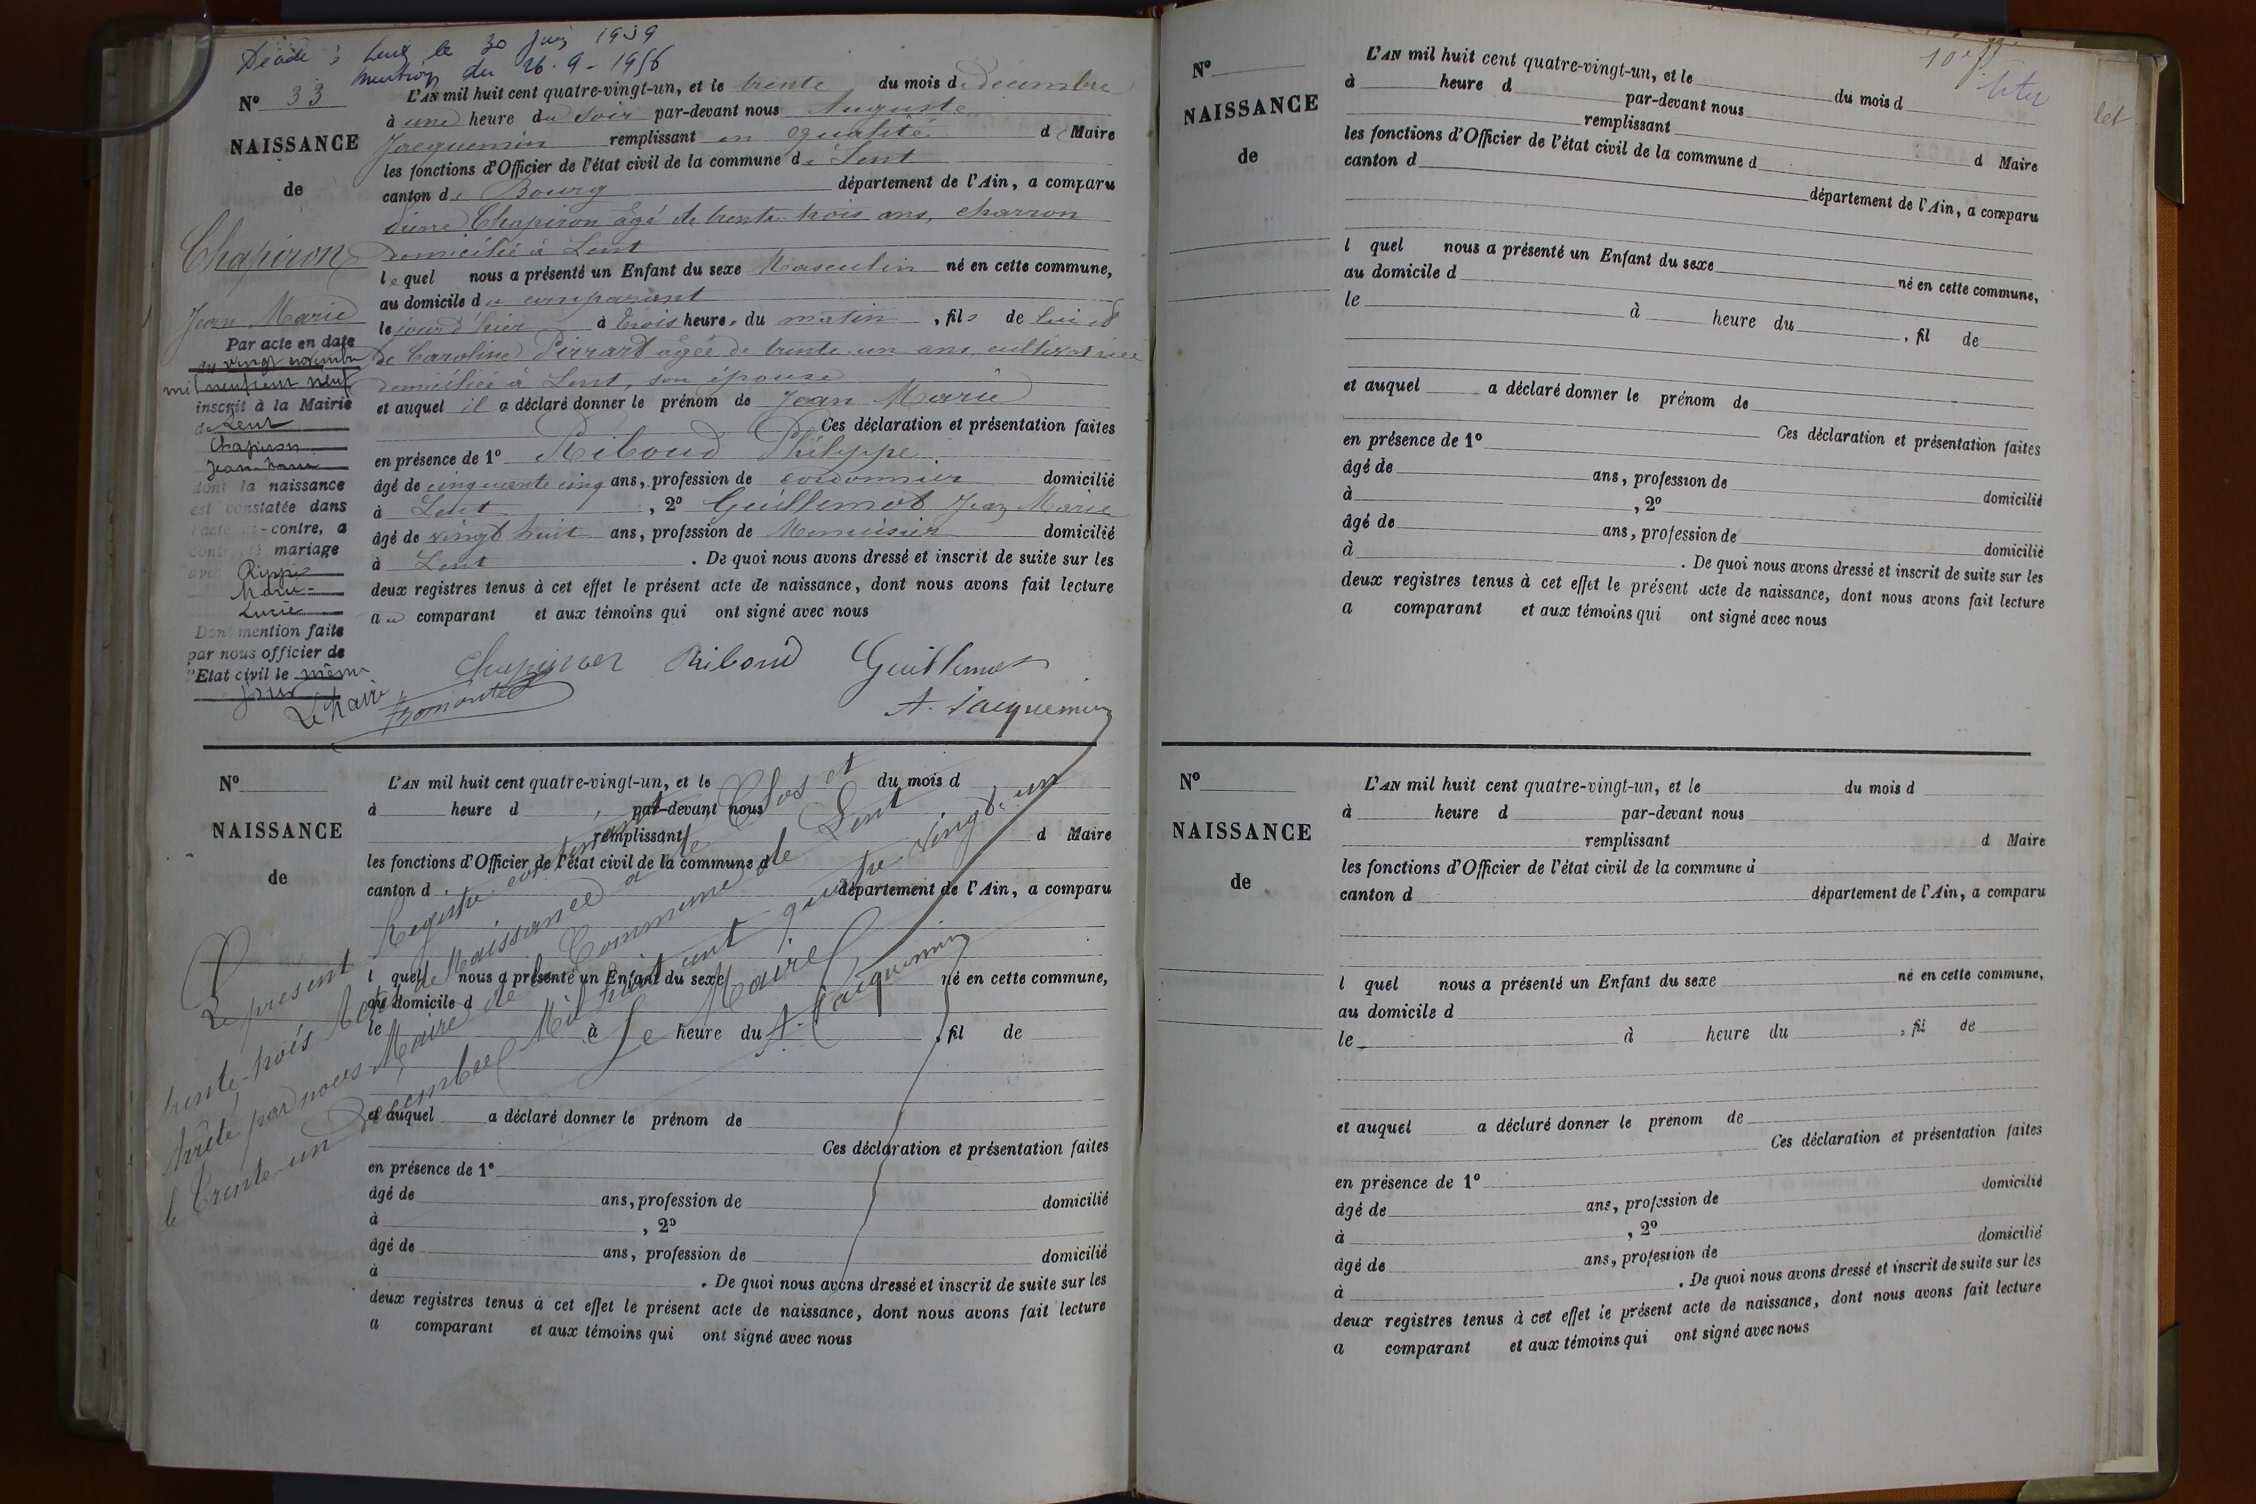 Décédé à Lent le 30 Juin 1939
mention du 26-9-1956
N° 33
NAISSANCE
de
Chapiron
Jean Marie
Par acte en date
du vingt novembre
mil neuf cent neuf
inscrit à la Mairie
de Lent
Chapiron
Jean Marie
dont la naissance
est constatée dans
l'acte ci-contre, a
contracté mariage
avec Rippe
Marie
Lucie
Dont mention faite
par nous officier de
l'Etat civil le même
jour
Le Maire
L'AN mil huit cent quatre-vingt-un, et le trente du mois de Décembre
à une heure du soir par-devant nous Auguste
Jacquemin remplissant en qualité de Maire
les fonctions d'Officier de l'état civil de la commune de Lent
canton de Bourg département de l'Ain, a comparu
Pierre Chapiron âgé de trente-trois ans, charron
domicilié à Lent
lequel nous a présenté un Enfant du sexe Masculin né en cette commune,
au domicile du comparant
le jour d'hier à trois heures du matin, fils de lui et
de Caroline Pirrard âgée de trente un ans, cultivatrice
domiciliée à Lent, son épouse
et auquel il a déclaré donner le prénom de Jean Marie
Ces déclaration et présentation faites
en présence de 1° Riboud Philippe
âgé de cinquante cinq ans, profession de cordonnier domicilié
à Lent, 2° Guillemot Jean Marie
âgé de vingt huit ans, profession de Menuisier domicilié
à Lent. De quoi nous avons dressé et inscrit de suite sur les
deux registres tenus à cet effet le présent acte de naissance, dont nous avons fait lecture
au comparant et aux témoins qui ont signé avec nous
Chapiron Riboud Guillemot
A. Jacquemin
N°
NAISSANCE
de
L'AN mil huit cent quatre-vingt-un, et le du mois d
à heure d par-devant nous
remplissant d Maire
les fonctions d'Officier de l'état civil de la commune d
canton d département de l'Ain, a comparu
l quel nous a présenté un Enfant du sexe né en cette commune,
au domicile d
le à heure du , fil de
et auquel a déclaré donner le prénom de
Ces déclaration et présentation faites
en présence de 1°
âgé de ans, profession de domicilié
à , 2°
âgé de ans, profession de domicilié
à . De quoi nous avons dressé et inscrit de suite sur les
deux registres tenus à cet effet le présent acte de naissance, dont nous avons fait lecture
a comparant et aux témoins qui ont signé avec nous
Le présent Registre contenant
trente-trois Actes de Naissance a été Clos et
Arrêté par nous Maire de la Commune de Lent
le trente-un Décembre Mil huit cent quatre vingt-un
Le Maire
A. Jacquemin
N°
NAISSANCE
de
L'AN mil huit cent quatre-vingt-un, et le du mois d
à heure d par-devant nous
remplissant d Maire
les fonctions d'Officier de l'état civil de la commune d
canton d département de l'Ain, a comparu
l quel nous a présenté un Enfant du sexe né en cette commune,
au domicile d
le à heure du , fil de
et auquel a déclaré donner le prénom de
Ces déclaration et présentation faites
en présence de 1°
âgé de ans, profession de domicilié
à , 2°
âgé de ans, profession de domicilié
à . De quoi nous avons dressé et inscrit de suite sur les
deux registres tenus à cet effet le présent acte de naissance, dont nous avons fait lecture
a comparant et aux témoins qui ont signé avec nous
N°
NAISSANCE
de
L'AN mil huit cent quatre-vingt-un, et le du mois d
à heure d par-devant nous
remplissant d Maire
les fonctions d'Officier de l'état civil de la commune d
canton d département de l'Ain, a comparu
l quel nous a présenté un Enfant du sexe né en cette commune,
au domicile d
le à heure du , fil de
et auquel a déclaré donner le prénom de
Ces déclaration et présentation faites
en présence de 1°
âgé de ans, profession de domicilié
à , 2°
âgé de ans, profession de domicilié
à . De quoi nous avons dressé et inscrit de suite sur les
deux registres tenus à cet effet le présent acte de naissance, dont nous avons fait lecture
a comparant et aux témoins qui ont signé avec nous